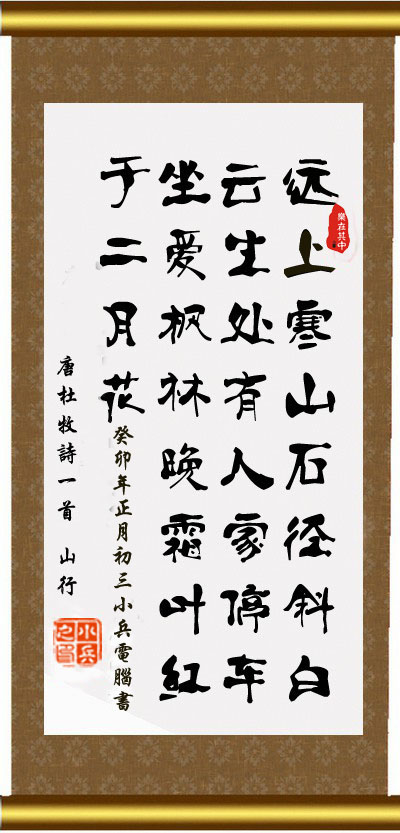 樂在其中
远上寒山石径斜白
云生处有人家停车
坐爱枫林晚霜叶红
于二月花
癸卯年正月初三小兵電腦書
唐杜牧詩一首 山行
小兵
之印